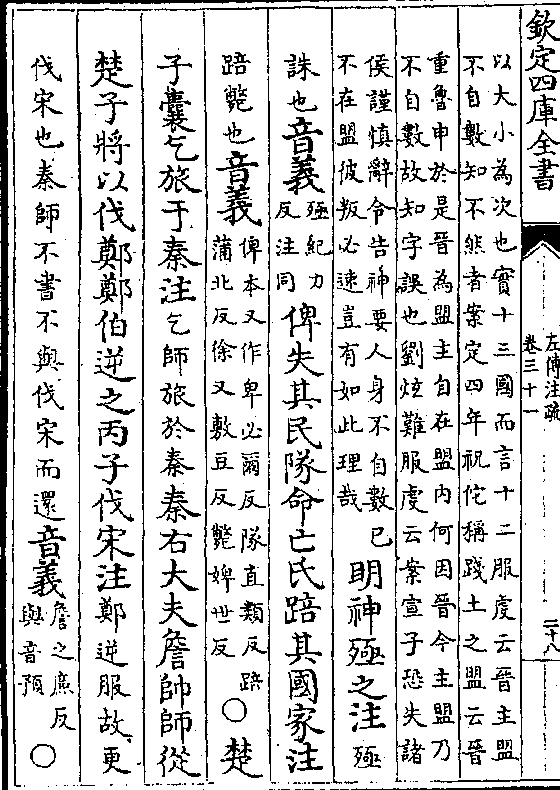 欽定四庫全書
左傳注疏
卷三十一
二十八
以大小為次也實十三國而言十二服虔云晉主盟
不自數知不然者案定四年祝佗稱踐土之盟云晉
重魯申於是晉為盟主自在盟內何因晉今主盟乃
不自數故知字誤也劉炫難服虔云案宣子恐失諸
侯謹慎辭令告神要人身不自數已
不在盟彼叛必速豈有如此理哉
明神殛之注殛
誅也音義殛紀力
反注同
俾失其民隊命亡氏踣其國家注
踣斃也音義俾本又作卑必爾反隊直類反踣
蒲北反徐又敷豆反斃婢世反
○楚
子囊乞旅于秦注乞師旅於秦秦右大夫詹帥師從
楚子將以伐鄭鄭伯逆之丙子伐宋注鄭逆服故更
伐宋也秦師不書不與伐宋而還音義詹之廉反
與音預
○